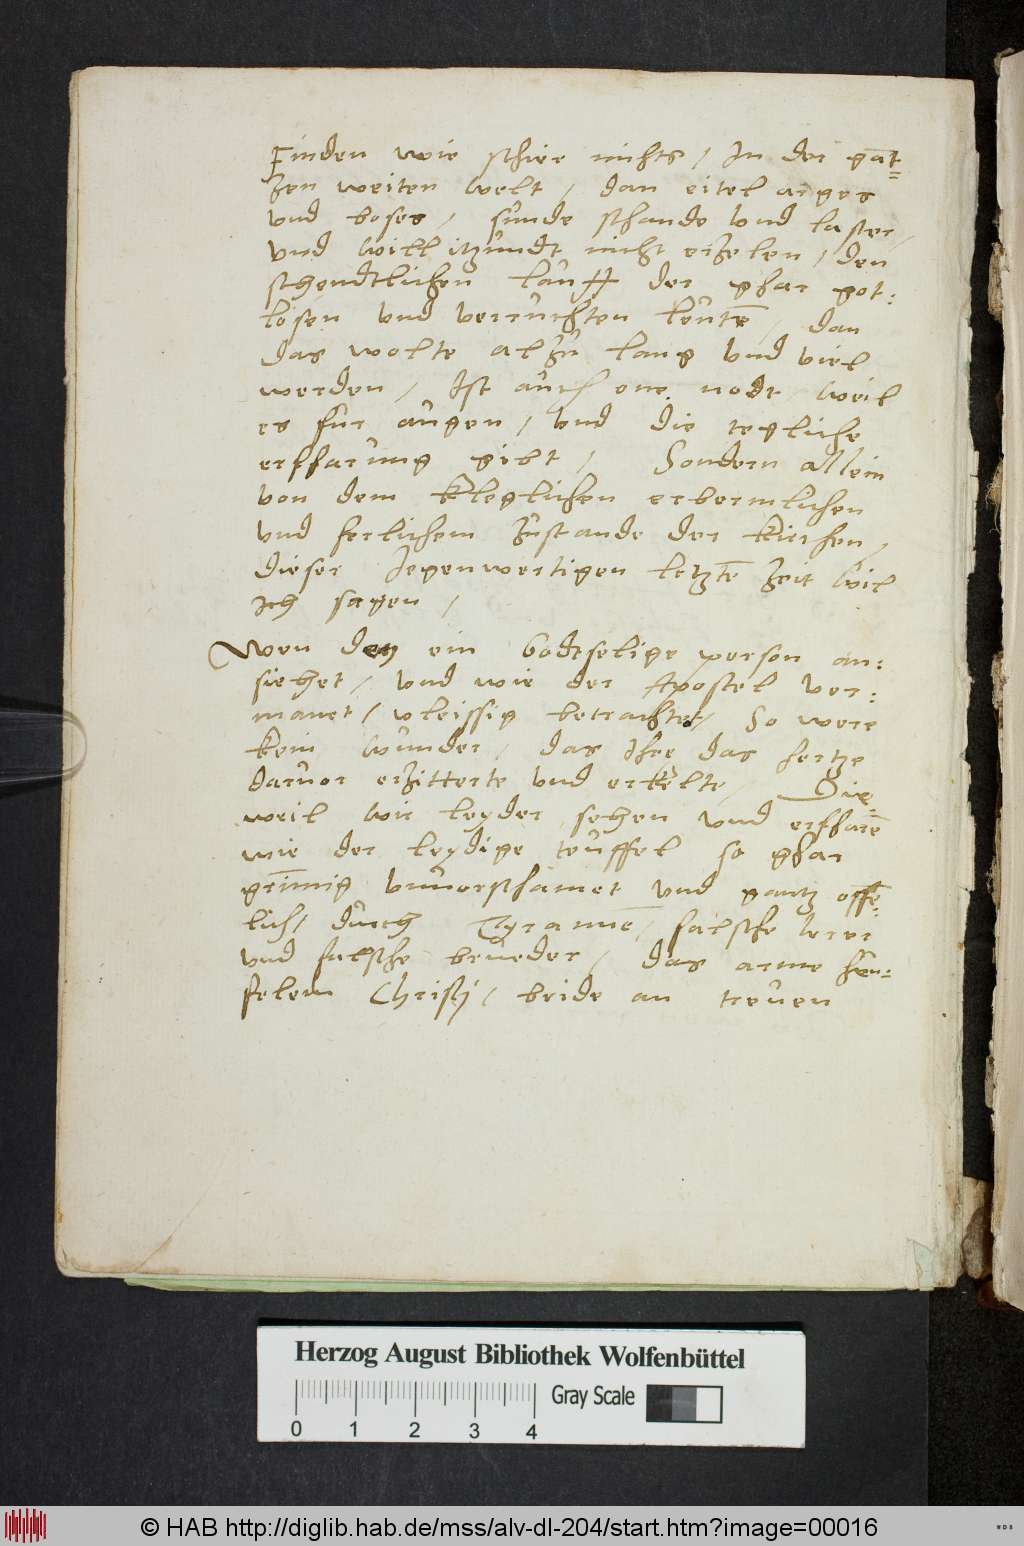 Finden wie schier nichts / In der gāt=
zen weiten welt / dan eitel arges
vnd boses / sünde schande vnd laster,
vnd will itzündt nicht erzelen / den
schendtlichen laufft der ghar got:
losen vnd verruchten leutē, dan
das wolte alzu lang vnd viel
werden / Ist auch one nodt, weil
es fur augen / vnd die tegliche
erffarung gibt / Sondern allein
von dem kleglichen erbermlichen
vnd ferlichem zustande der kirchen,
dieser Jegenwertigen letztē zeit wil
ich sagen /
Wen den ein Godtselige person an:
siehet / vnd wie der Apostel ver:
manet / vleissig betrachtet / So were
kein wunder, das Ihre das hertze
daruor erzitterte vnd erkelte / Die
weil wir leyder sehen vnd erffarē
wie der leydige teuffel so ghar
grimig vnuorschamet vnd gantz offē:
lich, durch Tyrannē, falsche lerer
vnd falsche brueder, das arme heu:
felein Christj / beide an treuen
Herzog August Bibliothek Wolfenbüttel
0 1 2 3 4
Gray Scale
© HAB http://diglib.hab.de/mss/alv-dl-204/start.htm?image=00016